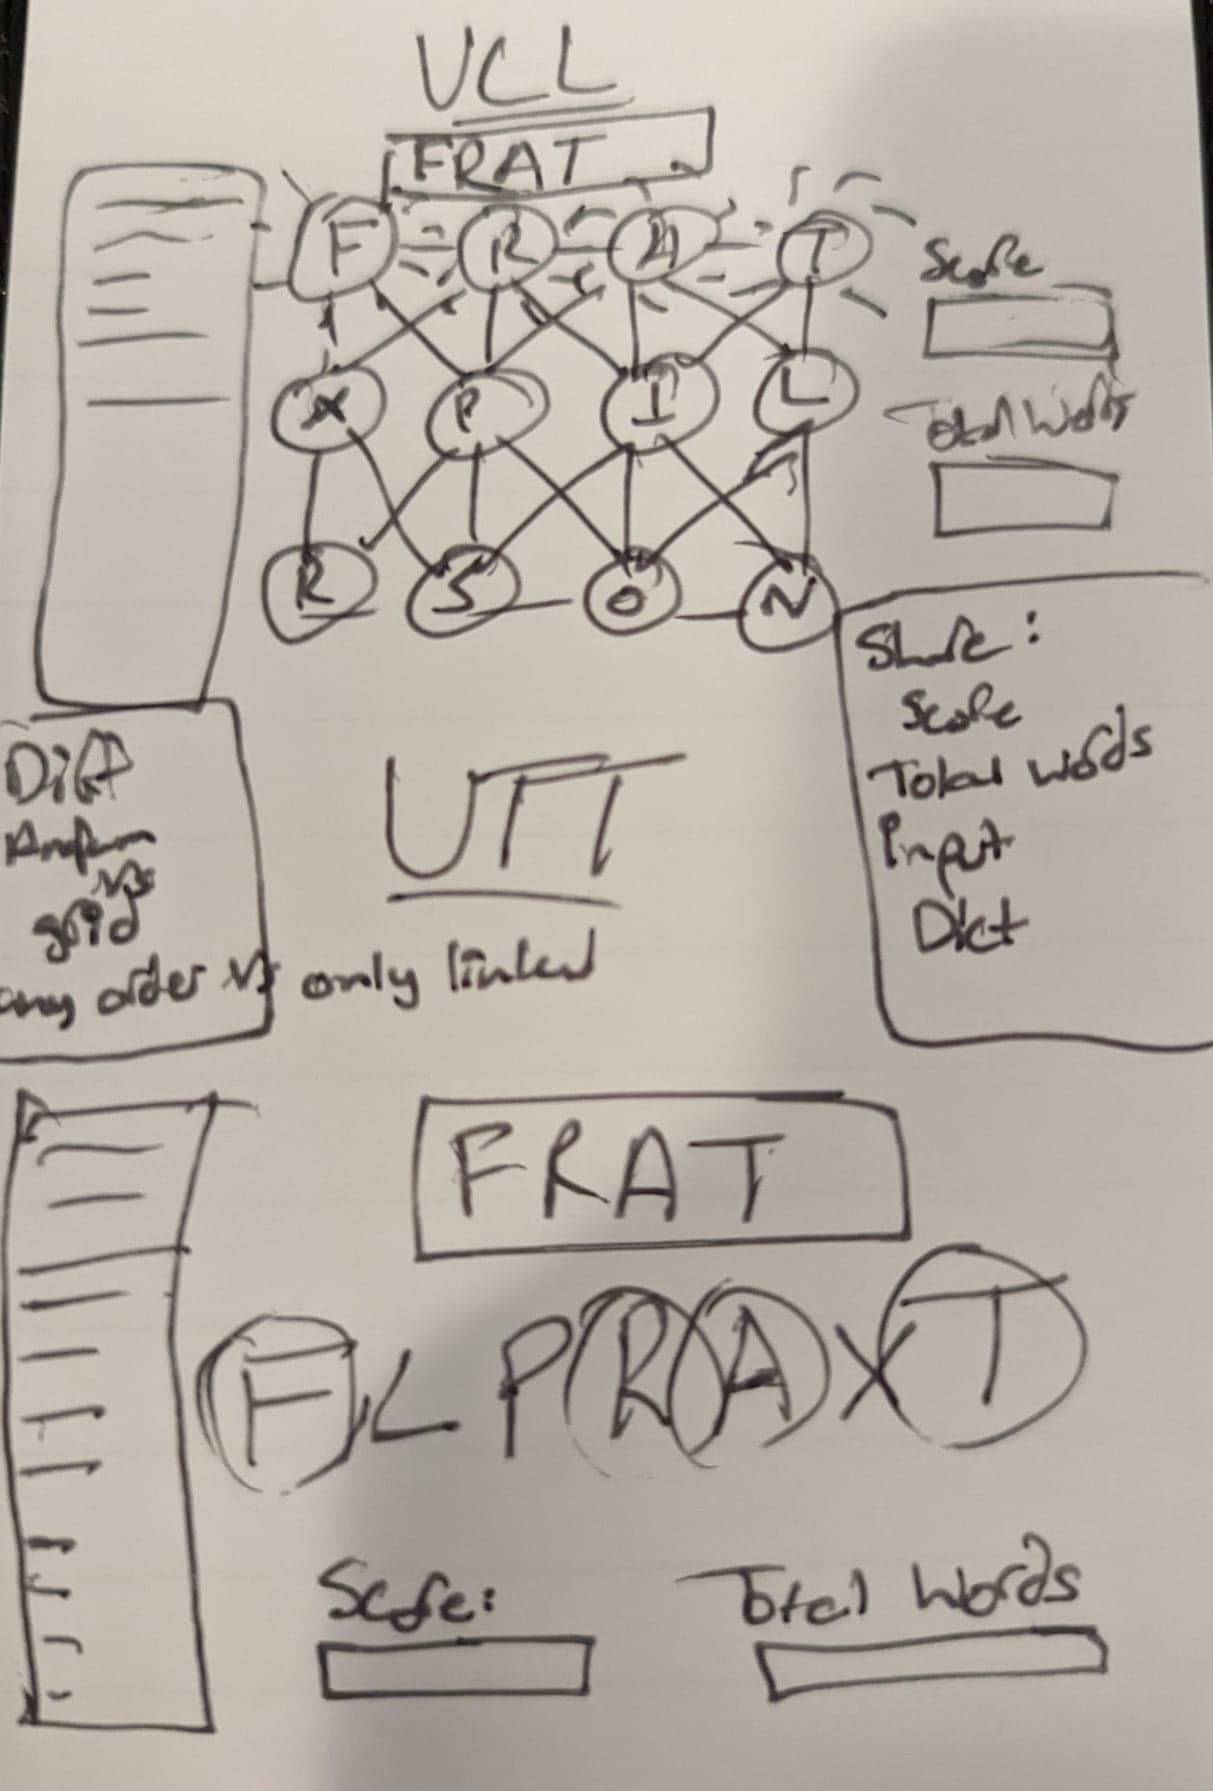 UCL
FRAT
F R A T
Score
X P I L
Total Words
R S O N
Share:
Score
Total words
Input
Dict
Diff
vs
grid
any order vs only linked
UTT
FRAT
F L P R A X T
Score:
Total Words